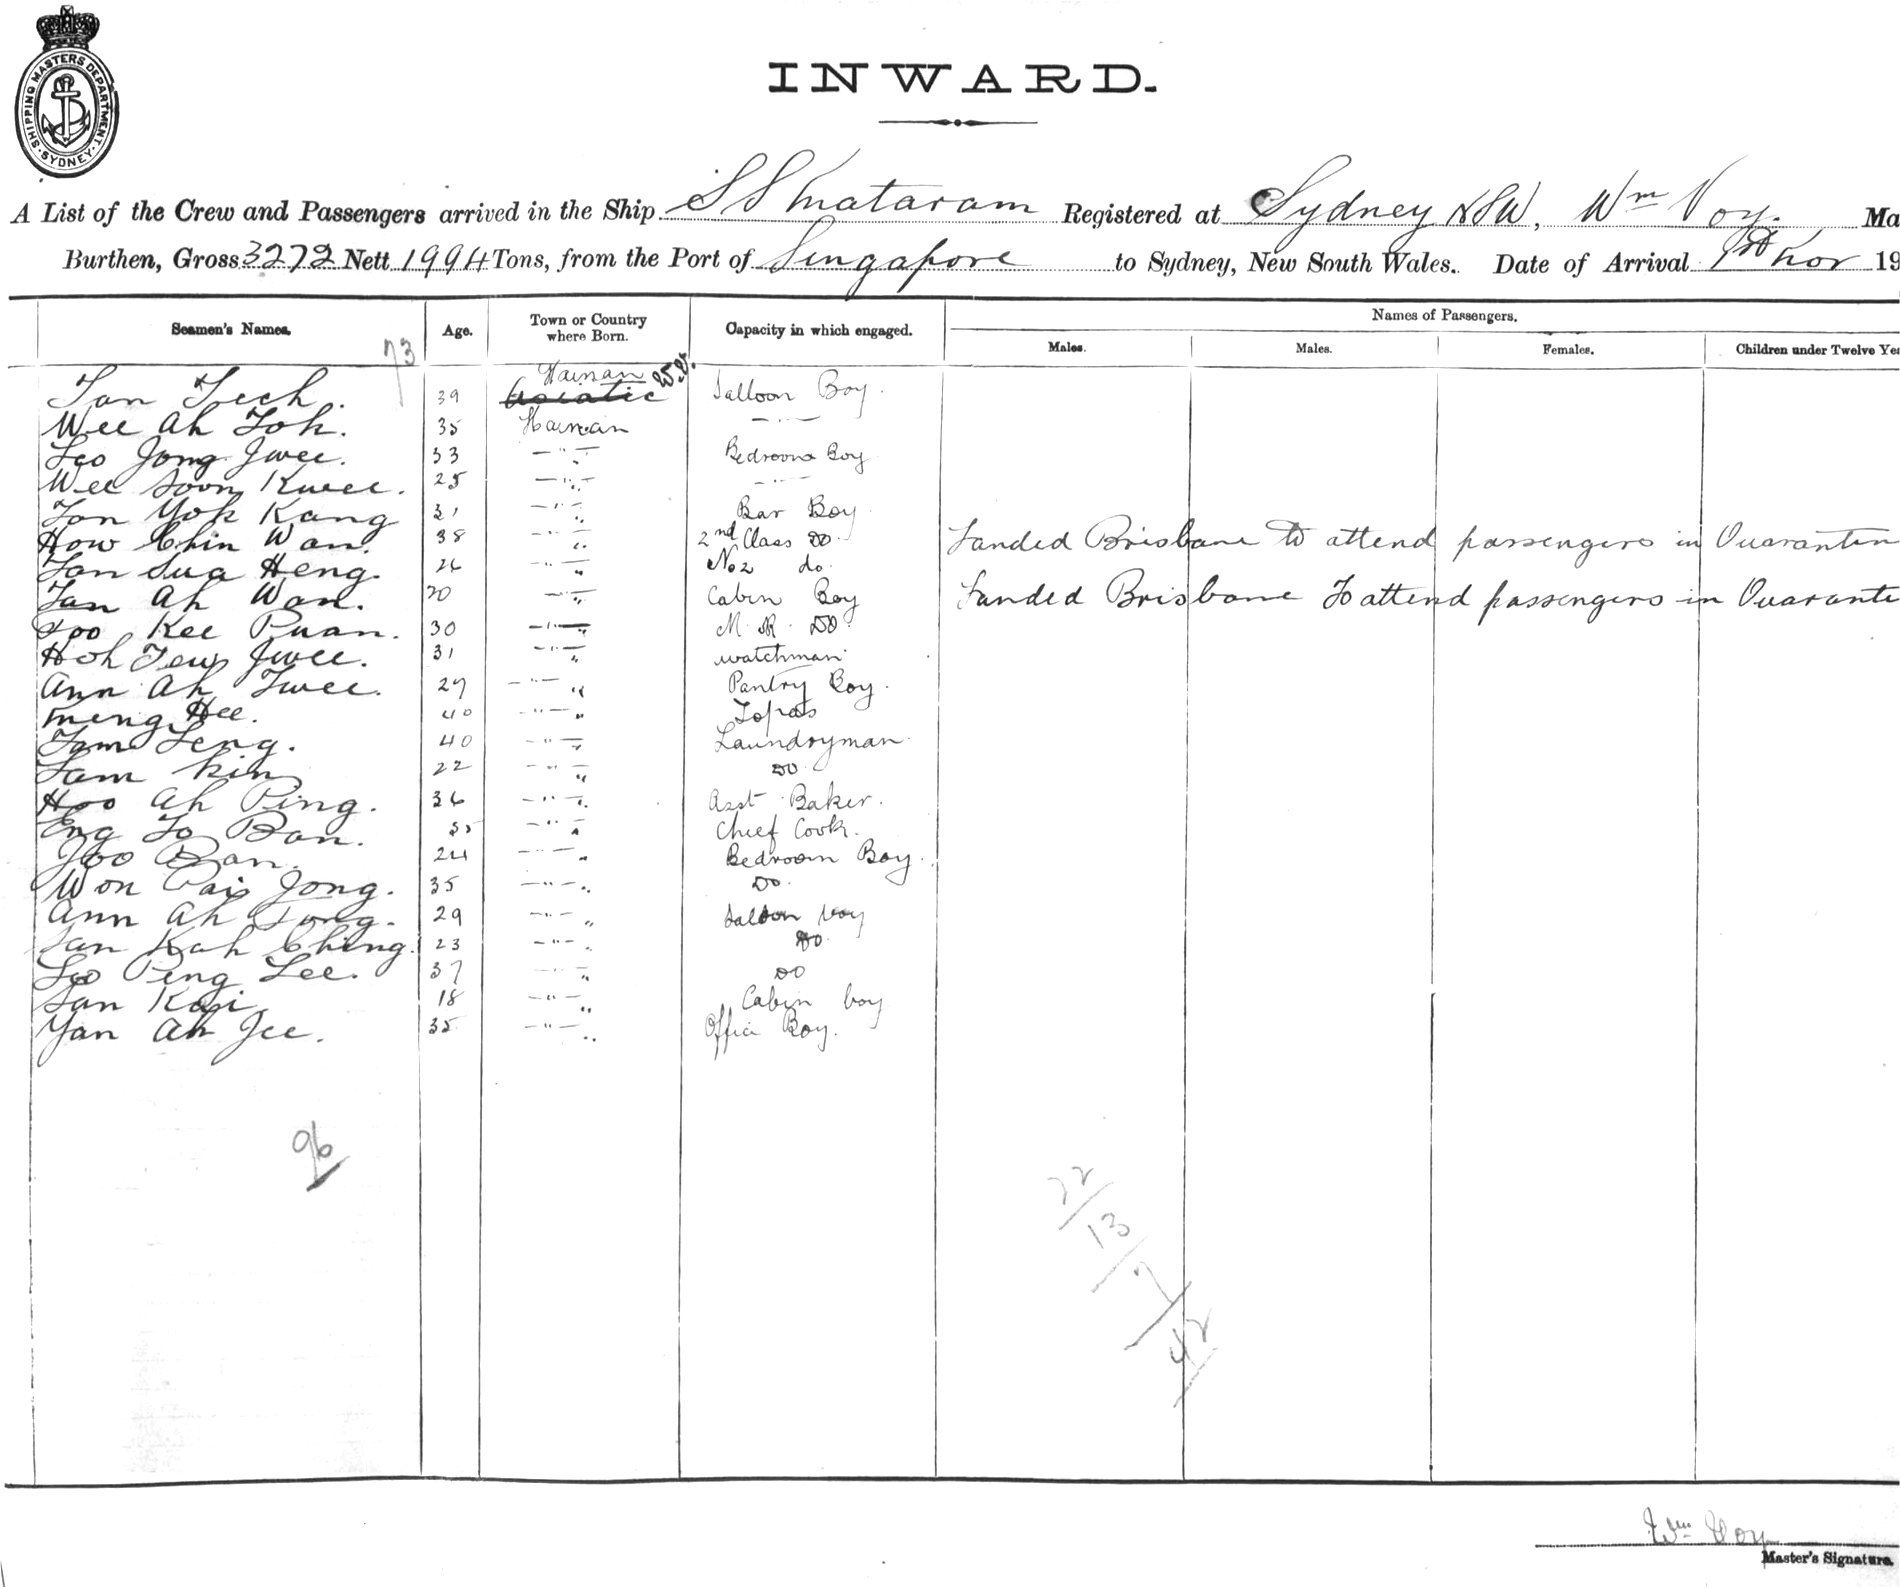 SHIPPING MASTERS DEPARTMENT · SYDNEY ·
INWARD.
A List of the Crew and Passengers arrived in the Ship SS Mataram Registered at Sydney NSW, Wm Voy. Ma
Burthen, Gross 3272 Nett 1994 Tons, from the Port of Singapore to Sydney, New South Wales. Date of Arrival Nov 19
Seamen's Names. Age. Town or Country where Born. Capacity in which engaged. Names of Passengers.
Males. Males. Females. Children under Twelve Yea
73
Tan Tech. 39 Hainan Asiatic Salloon Boy.
Wee Ah Toh. 35 Hainan — " —
Leo Jong Jwee. 33 — " — Bedroom Boy
Wee Soon Kwee. 25 — " — — " —
Tan Yok Kang 31 — " — Bar Boy.
How Chin Wan. 38 " 2nd Class Do. Landed Brisbane to attend passengers in Quarantin
Tan Sua Heng. 26 — " — No 2 do.
Tan Ah Wan. 20 — " — Cabin Boy Landed Brisbane To attend passengers in Quarante
Kee Puan. 30 — " — M. R. Do.
Hoh Tew Jwee. 31 — " — watchman
Ann Ah Twee. 29 — " — Pantry Boy.
Hee. 40 — " — Topas
Tam Seng. 40 — " — Laundryman
Tam Kin 22 — " — Do
Hoo Ah Ping. 36 — " — Asst Baker.
Eng To Ban. 35 — " — Chief Cook.
Ban. 24 — " — Bedroom Boy.
Won Pais Jong. 35 — " — Do.
Ann Ah Tong. 29 — " — Saloon boy
Tan Kah Ching. 23 — " — Do.
Peng Lee. 37 — " — Do
Tan Kai 18 — " — Cabin boy
Yan Ah Jee. 35 — " — Office Boy.
96
22
13
7
42
Wm Voy
Master's Signature.